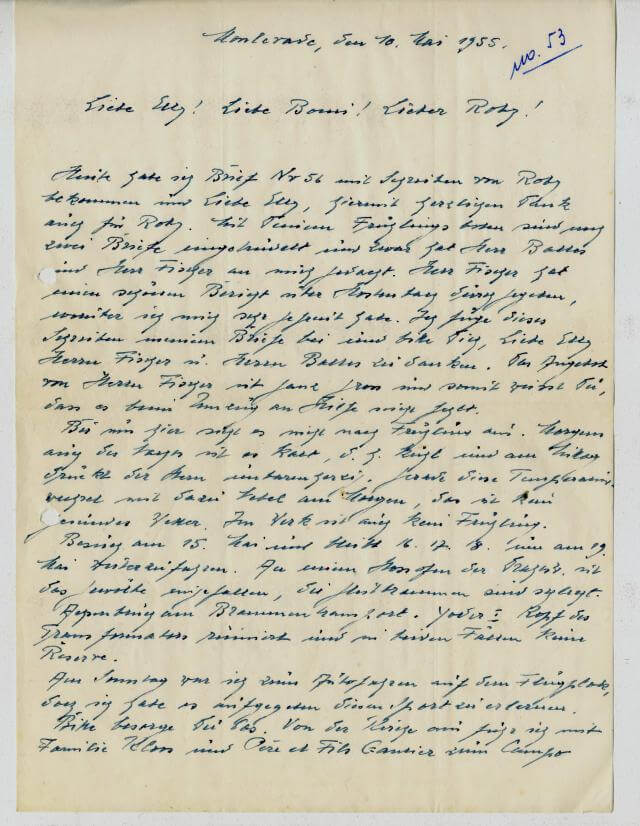 Monlevade, den 10. Mai 1955.
no. 53
Liebe Elly! Liebe Bomi! Lieber Roby!
Heute habe ich Brief Nr 56 mit Schreiben von Roby
bekommen und Liebe Elly, hiermit herzlichen Dank
auch für Roby. Mit Deinem Frühlingsboten sind noch
zwei Briefe eingetrudelt und zwar hat Herr Balles
und Herr Fischer an mich gedacht. Herr Fischer hat
einen schönen Bericht über durch gegeben,
worüber ich mich sehr gefreut habe. Ich füge dieses
Schreiben meinem Briefe bei und bitte Dich, Liebe Elly
Herrn Fischer u. Herrn Balles zu danken. Das Angebot
von Herrn Fischer ist ganz gross und somit weisst Du,
dass es beim Umzug an Hilfe nicht fehlt.
Bei uns hier sieht es nicht nach Frühling aus. Morgens
ist es kalt, d. h. kühl und am Mittag
drückt der Stern unbarmherzig. Gerade diese Temperatur-
wechsel mit dazu Nebel am Morgen, das ist kein
gesundes Wetter. Im Werk ist auch kein Frühling.
Besuch am 15. Mai und 16. 17. 18. um am 19.
Mai An einem der ist
das Gewölbe eingefallen, die sind
am Brammentransport. Kopf des
Transformators ruiniert und in beiden Fällen keine
Reserve.
Am Sonntag war ich zum Autofahren auf dem Flugplatz,
doch ich habe es aufgegeben diesen Sport zu erlernen.
Bitte besorge Du das. Von der Kirche aus fuhr ich mit
Familie Kloos und Père et Fils Gantier zum Campo